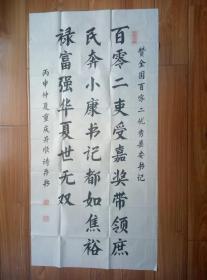 赞全国百零二优秀县委书记
百零二吏受嘉奖带领庶
民奔小康书记都如焦裕
禄富强华夏世无奴
丙申仲夏重庆苏顺诗并书